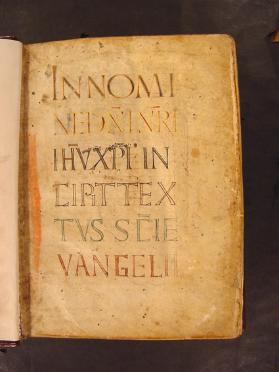 INNOMI
NEDÑI ÑRI
IH̅V XP̅I IN
CIPIT TEX
TVS SC̅IE
VANGELII